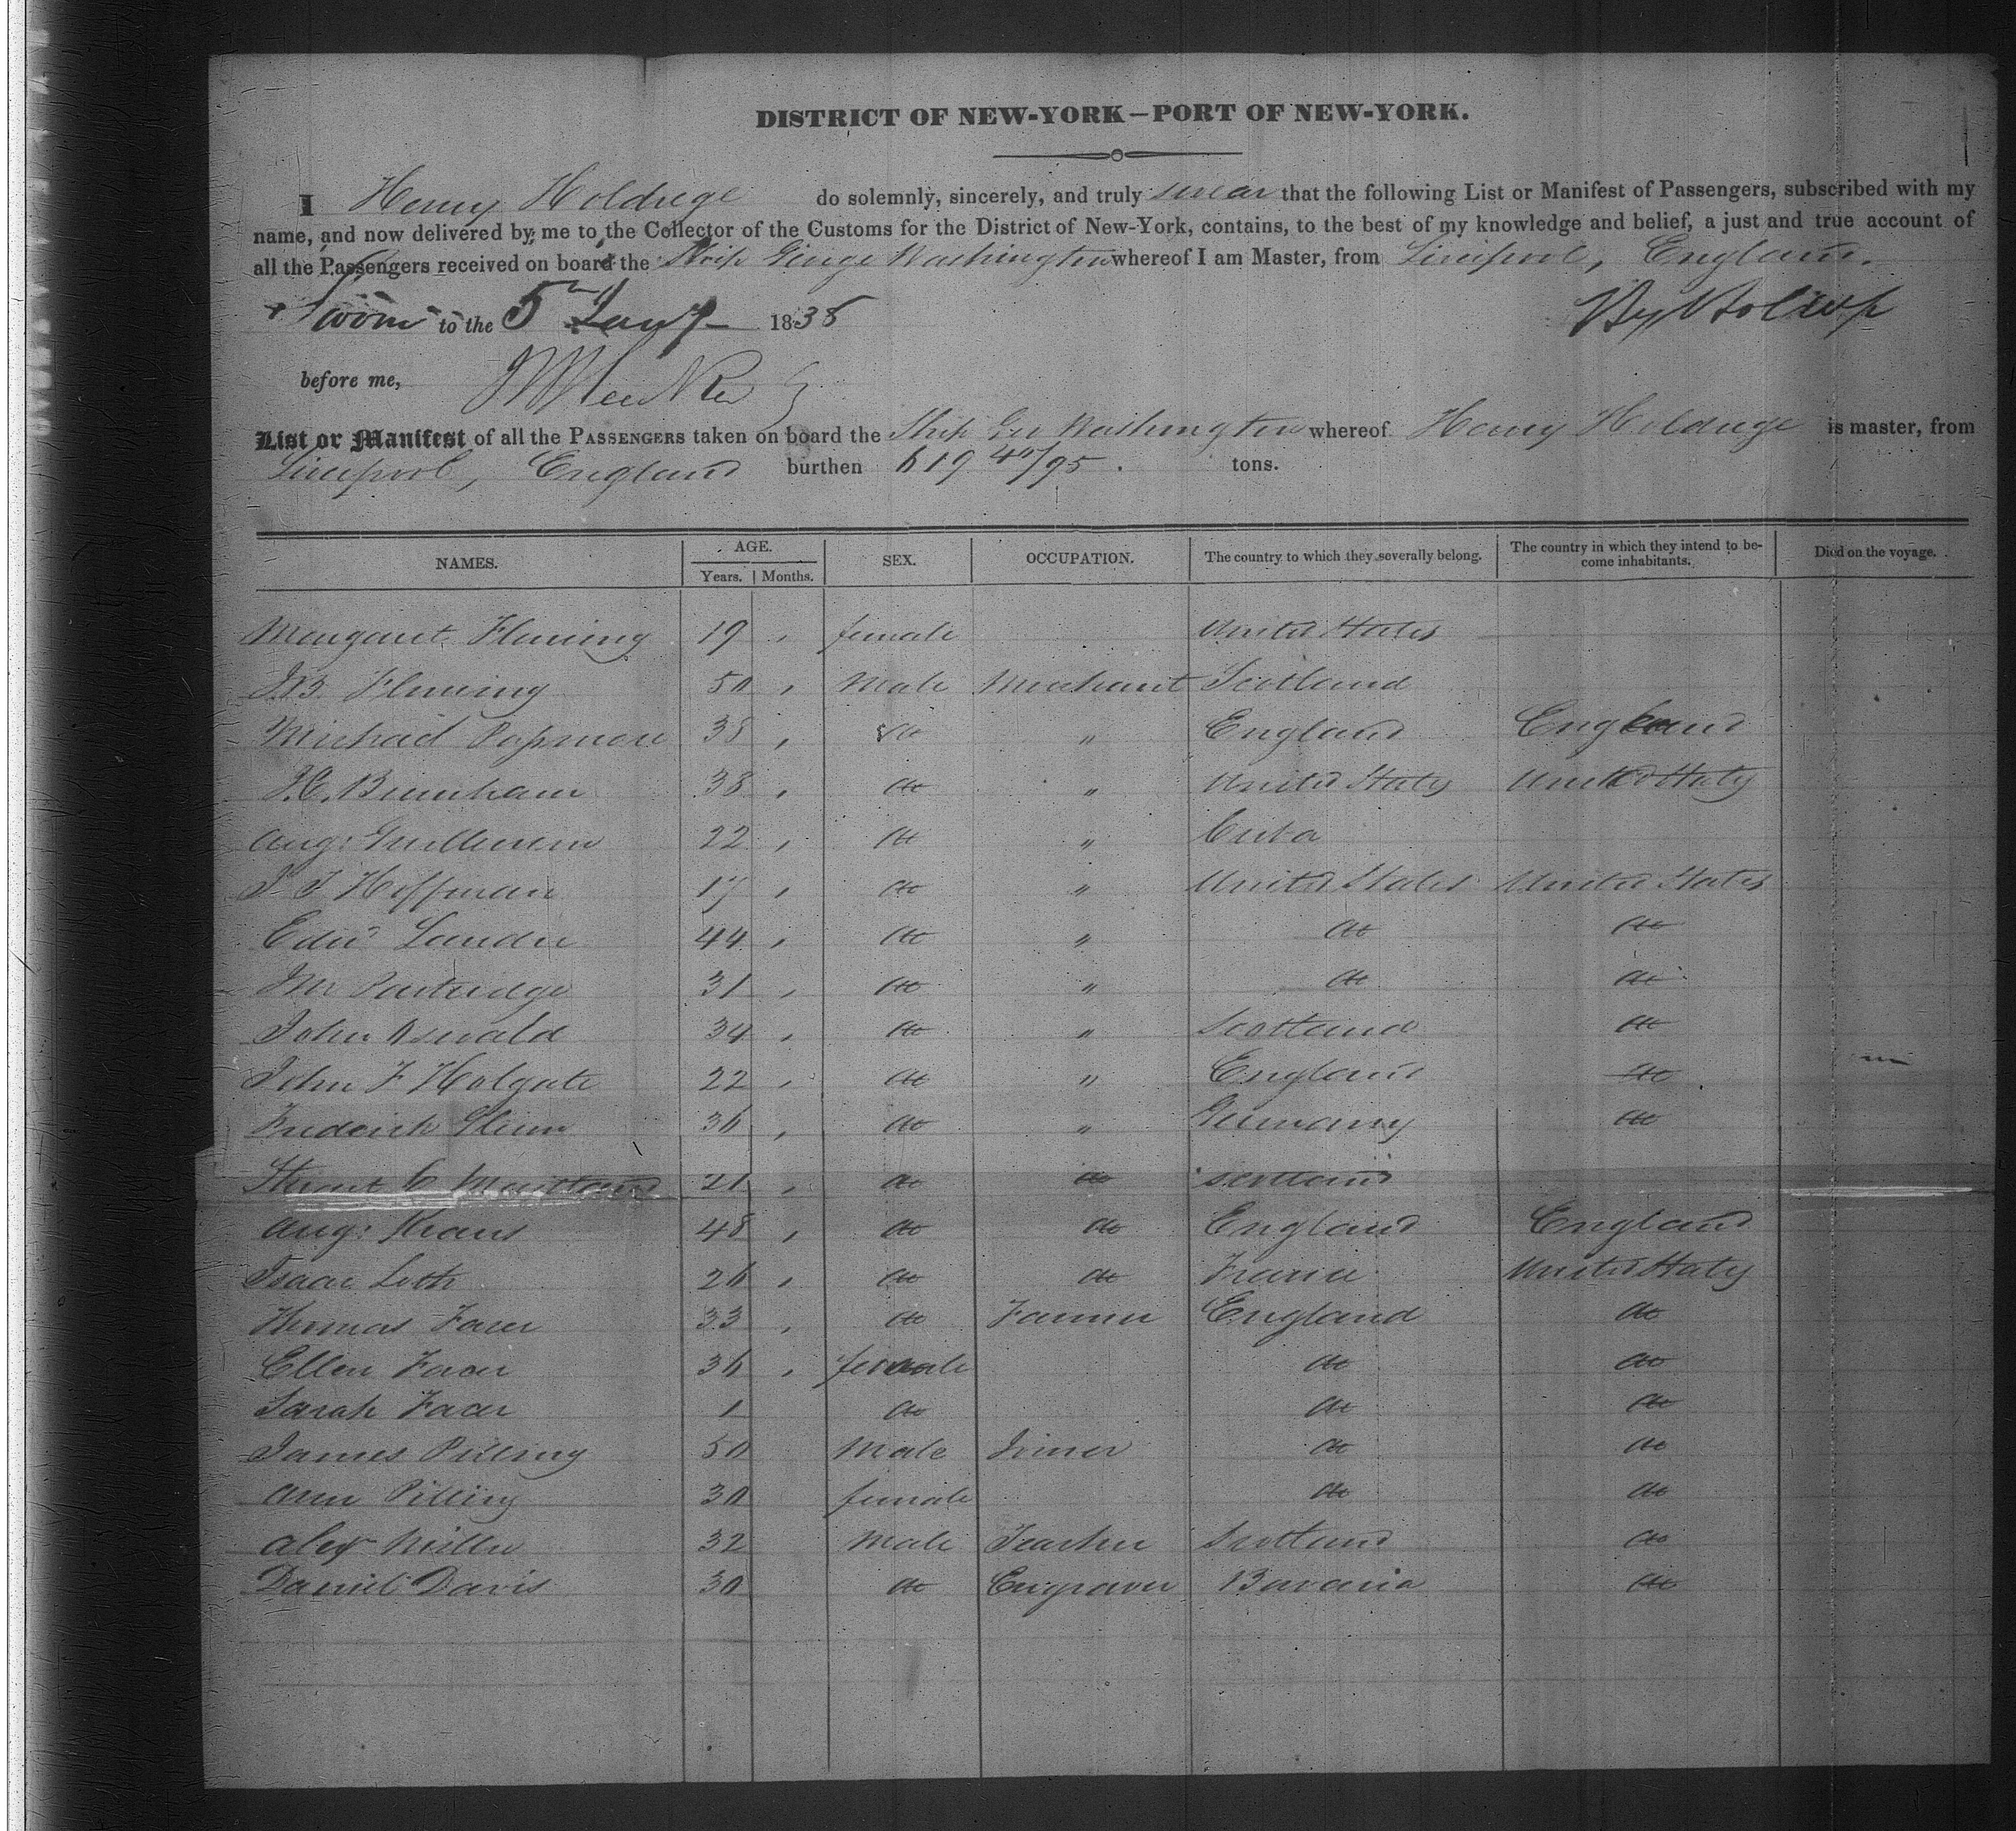 DISTRICT OF NEW-YORK—PORT OF NEW-YORK.
I Henry Holdrege do solemnly, sincerely, and truly swear that the following List or Manifest of Passengers, subscribed with my
name, and now delivered by me to the Collector of the Customs for the District of New-York, contains, to the best of my knowledge and belief, a just and true account of
all the Passengers received on board the Ship George Washington whereof I am Master, from Liverpool, England.
Sworn to the 5th Jany 1838
before me,
List or Manifest of all the PASSENGERS taken on board the Ship Geo Washington whereof Henry Holdrege is master, from
Liverpool, England burthen 619 /95. tons.
NAMES. AGE. Years. Months. SEX. OCCUPATION. The country to which they severally belong. The country in which they intend to become inhabitants. Died on the voyage.
Margaret Fleming 19 , female United States
J.B. Fleming 50 , Male Merchant Scotland
Michael 38 , do " England England
J.C. Burnham 38 , do " United States United States
Aug: 22 , do " Cuba
Hoffman 17 , do " United States United States
Edwd Lander 44 , do " do do
Partridge 31 , do " do do
John Oswald 34 , do " Scotland do
John F Holgate 22 , do " England do
Frederick 36 , do " Germany do
Stuart C Maitland 21 , do do Scotland
Aug: Kraus 48 , do do England England
Isaac Loth 26 , do do France United States
Thomas Facer 33 , do Farmer England do
Ellen Facer 36 , female do do
Sarah Facer 1 do do do
James Pilling 50 Male Joiner do do
Ann Pilling 30 female do do
Alex Miller 32 Male Teacher Scotland do
Daniel Davis 30 do Engraver Bavaria do